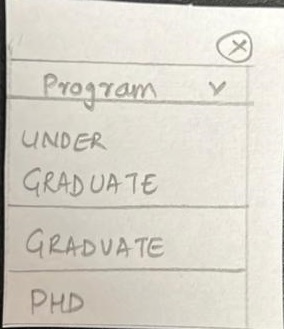 Program
UNDER
GRADUATE
GRADUATE
PHD